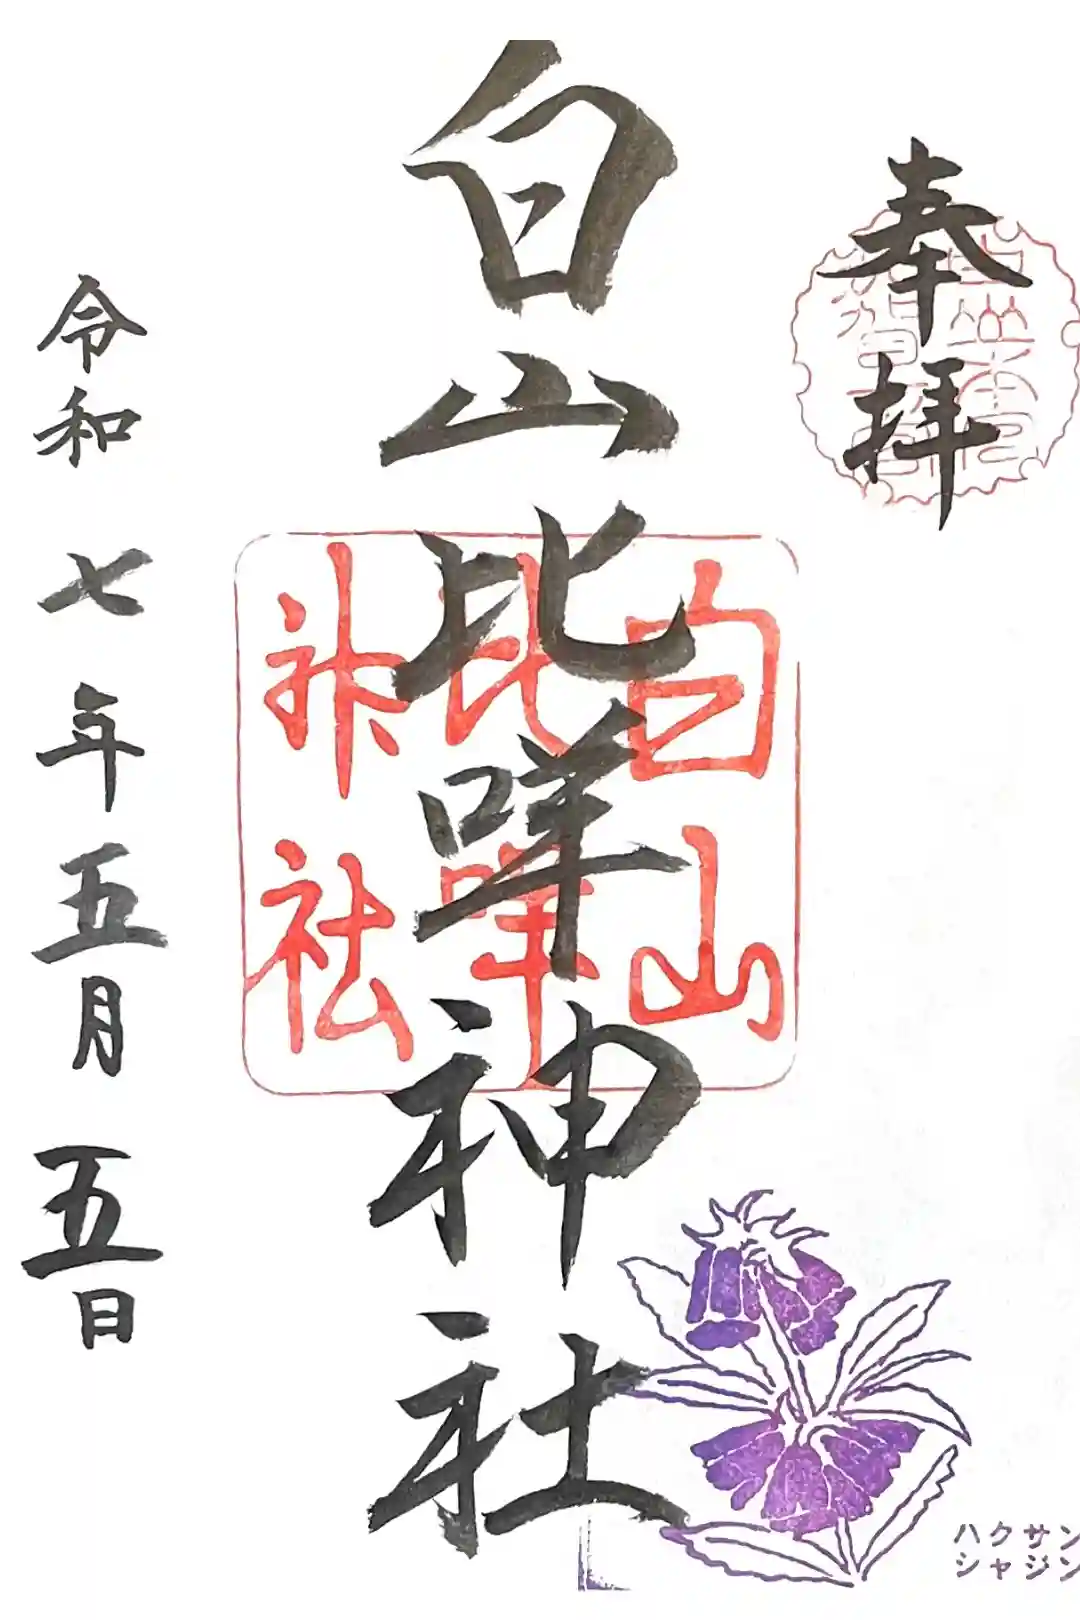 奉拝
白山比咩神社
白山
比咩
神社
令和 七 年 五月 五日
ハクサン
シャジン